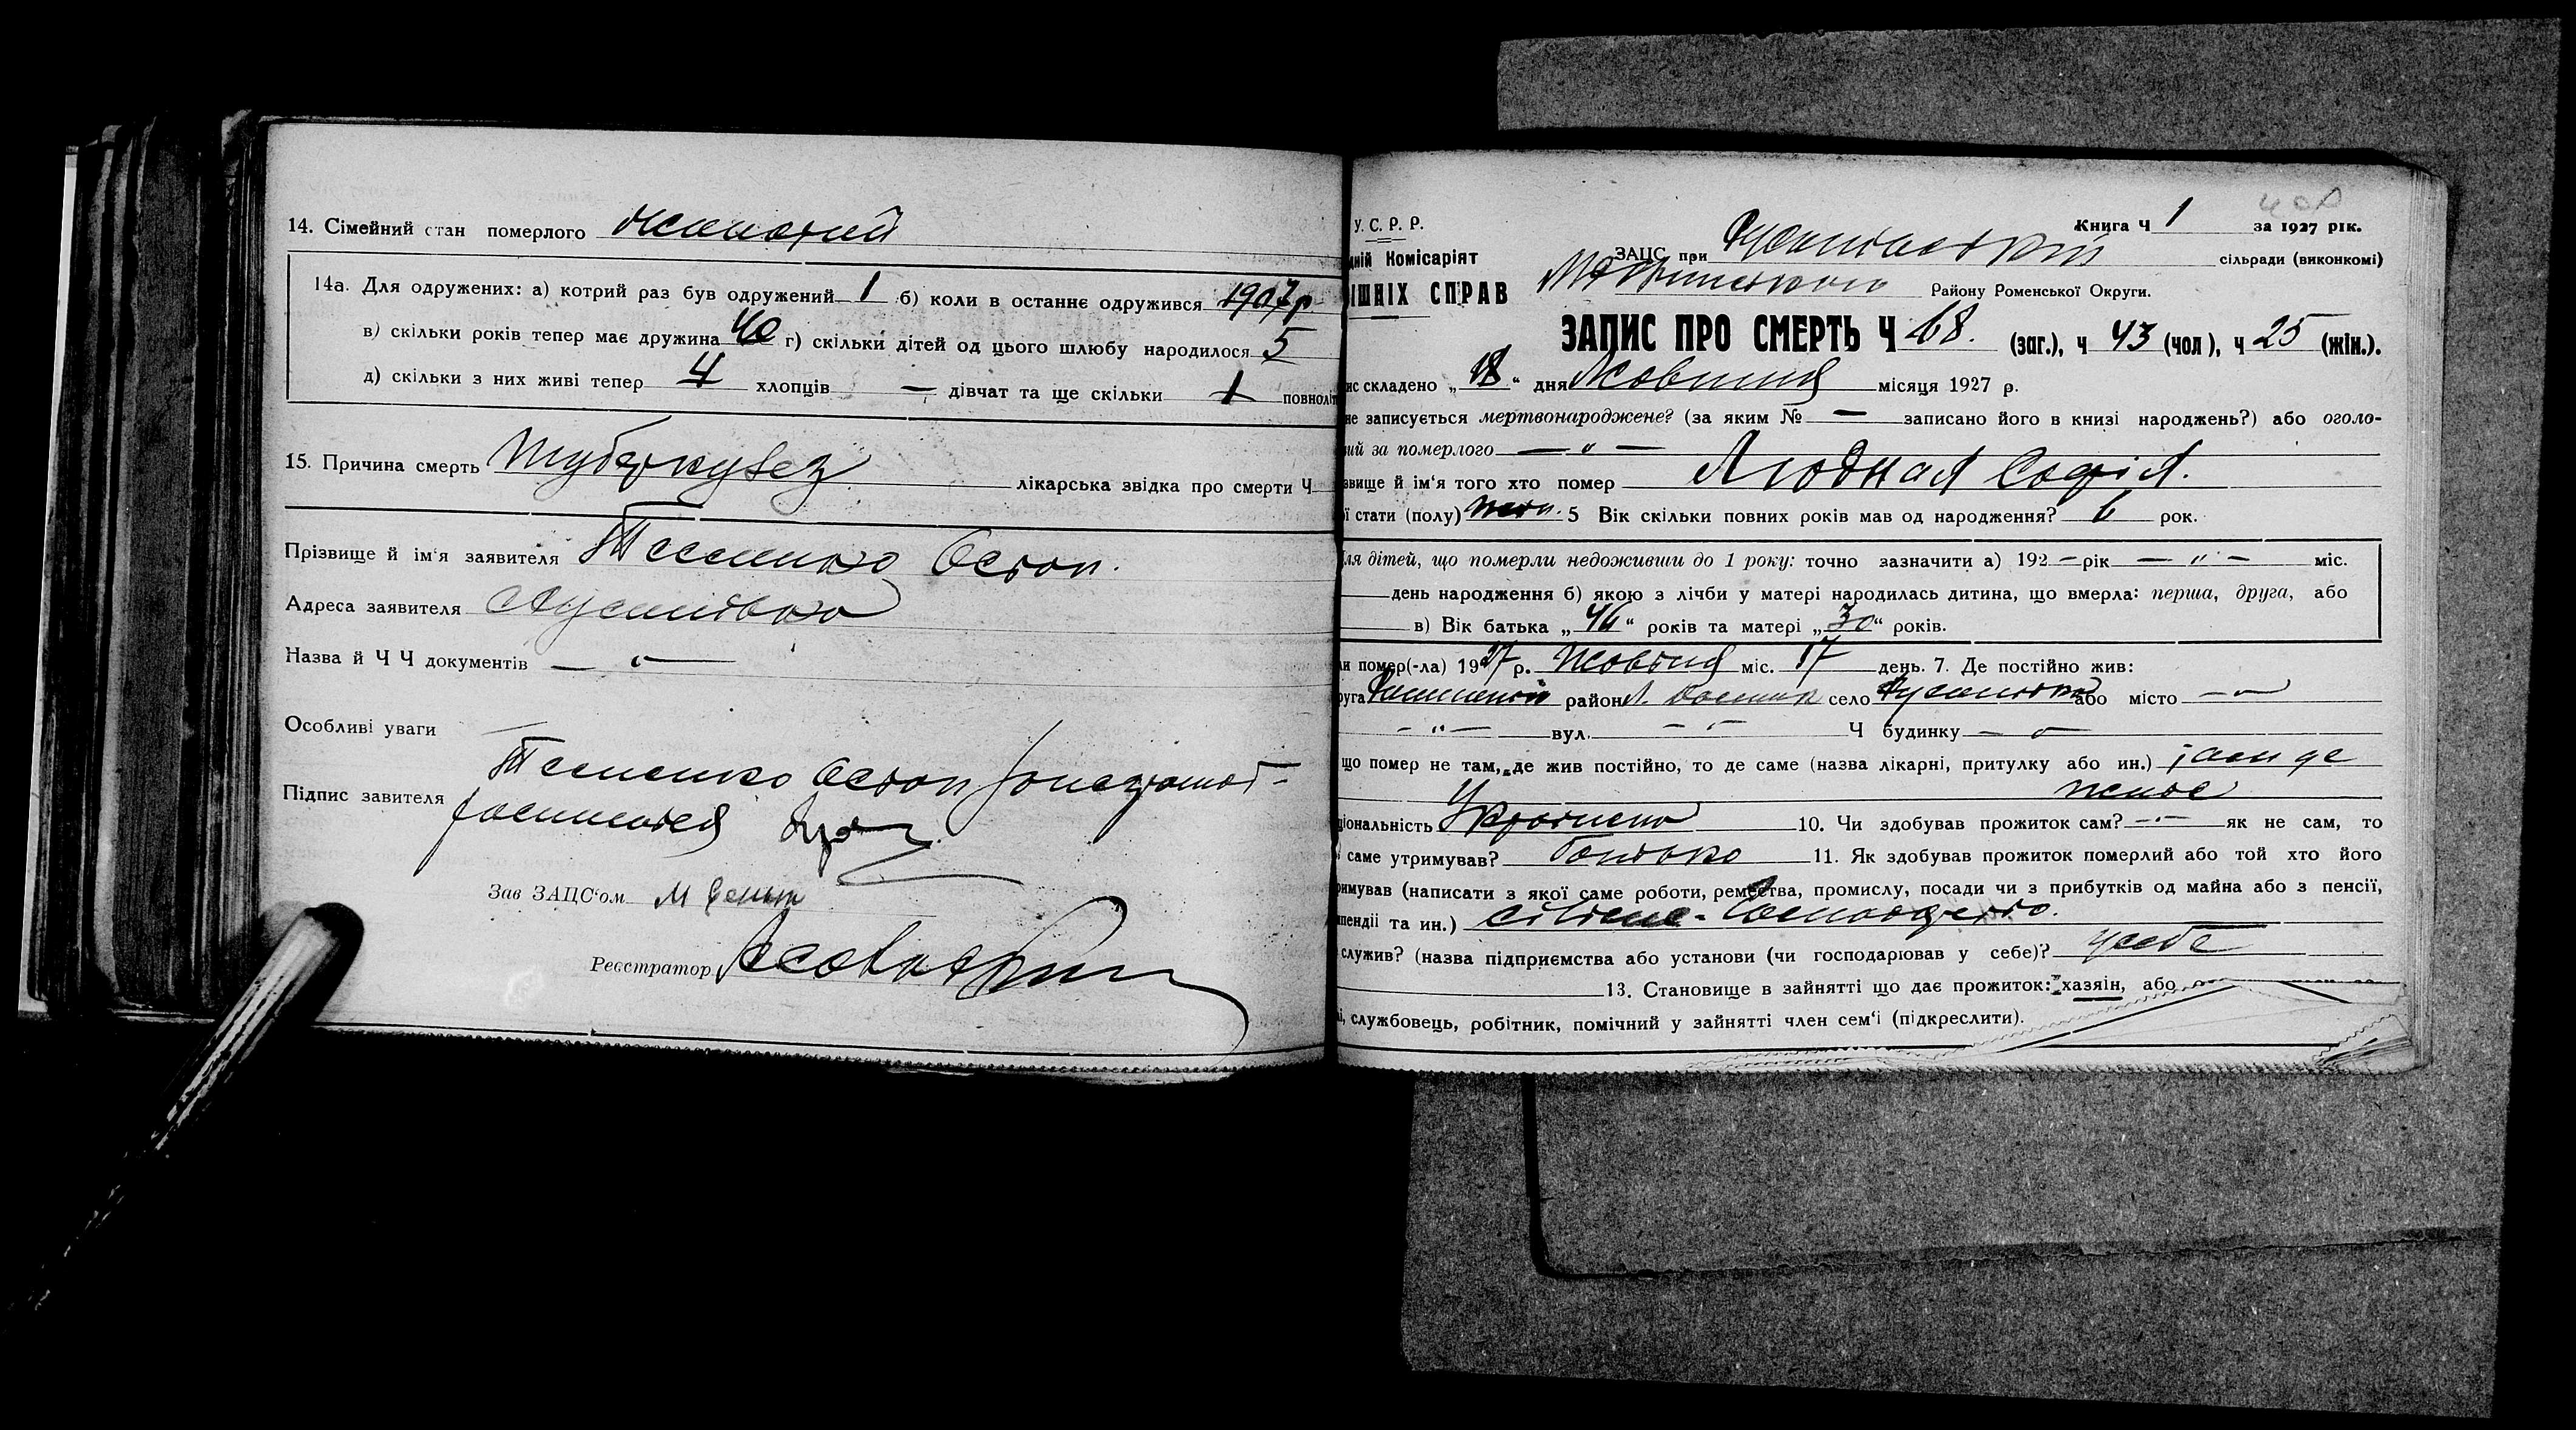 14. Сімейний стан померлого жонатий
14а. Для одружених: а) котрий раз був одружений 1 б) коли в останнє одружився 1907 р.
в) скільки років тепер має дружина 40 г) скільки дітей од цього шлюбу народилося 5
д) скільки з них живі тепер 4 хлопців — дівчат та ще скільки 1 повноліт
15. Причина смерть туберкульоз лікарська звідка про смерти Ч
Прізвище й ім'я заявителя Остап.
Адреса заявителя
Назва й Ч Ч документів — " —
Особливі уваги —
Підпис завителя Остап
Зав ЗАЦС'ом
Реєстратор
У. С. Р. Р.
дній Комісаріят
ІШНІХ СПРАВ
Книга Ч 1 за 1927 рік.
ЗАЦС при сільради (виконкомі)
Району Роменської Округи.
ЗАПИС ПРО СМЕРТЬ Ч 68. (заг.), ч 43 (чол), ч 25 (жін.).
ис складено „18“ дня Жовтня місяця 1927 р.
не записується мертвонароджене? (за яким № — записано його в книзі народжень?) або оголо-
ий за померлого — " —
звище й ім'я того хто помер Людная Софія.
ї стати (полу) жен. 5 Вік скільки повних років мав од народження? 6 рок.
ля дітей, що померли недоживши до 1 року: точно зазначити а) 192 — рік — " — міс.
день народження б) якою з лічби у матері народилась дитина, що вмерла: перша, друга, або
в) Вік батька „46“ років та матері „30“ років.
и помер(-ла) 1927 р. Жовтня міс. 17 день. 7. Де постійно жив:
руга район село або місто — " —
— " — вул. — " — Ч будинку — " —
що помер не там, де жив постійно, то де саме (назва лікарні, притулку або ин.) там де
жив
ціональність Українка 10. Чи здобував прожиток сам? — " — як не сам, то
саме утримував? батько 11. Як здобував прожиток померлий або той хто його
римував (написати з якої саме роботи, ремества, промислу, посади чи з прибутків од майна або з пенсії,
пендії та ин.) сільське-господарство.
служив? (назва підприємства або установи (чи господарював у себе)? у себе
13. Становище в зайнятті що дає прожиток: хазяін, або
і, службовець, робітник, помічний у зайнятті член сем'і (підкреслити).